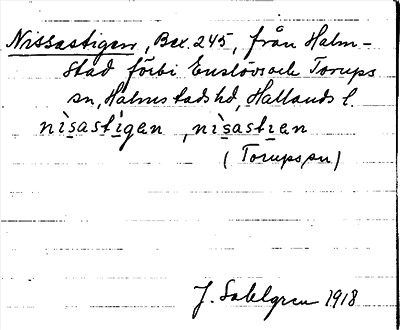 Nissastigen, Bex. 245, från Halm-
stad förbi Enslövs och Torups
sn, Halmstads hd, Hallands l.
nisastigen, nisastien
(Torups sn)
J. Sahlgren 1918